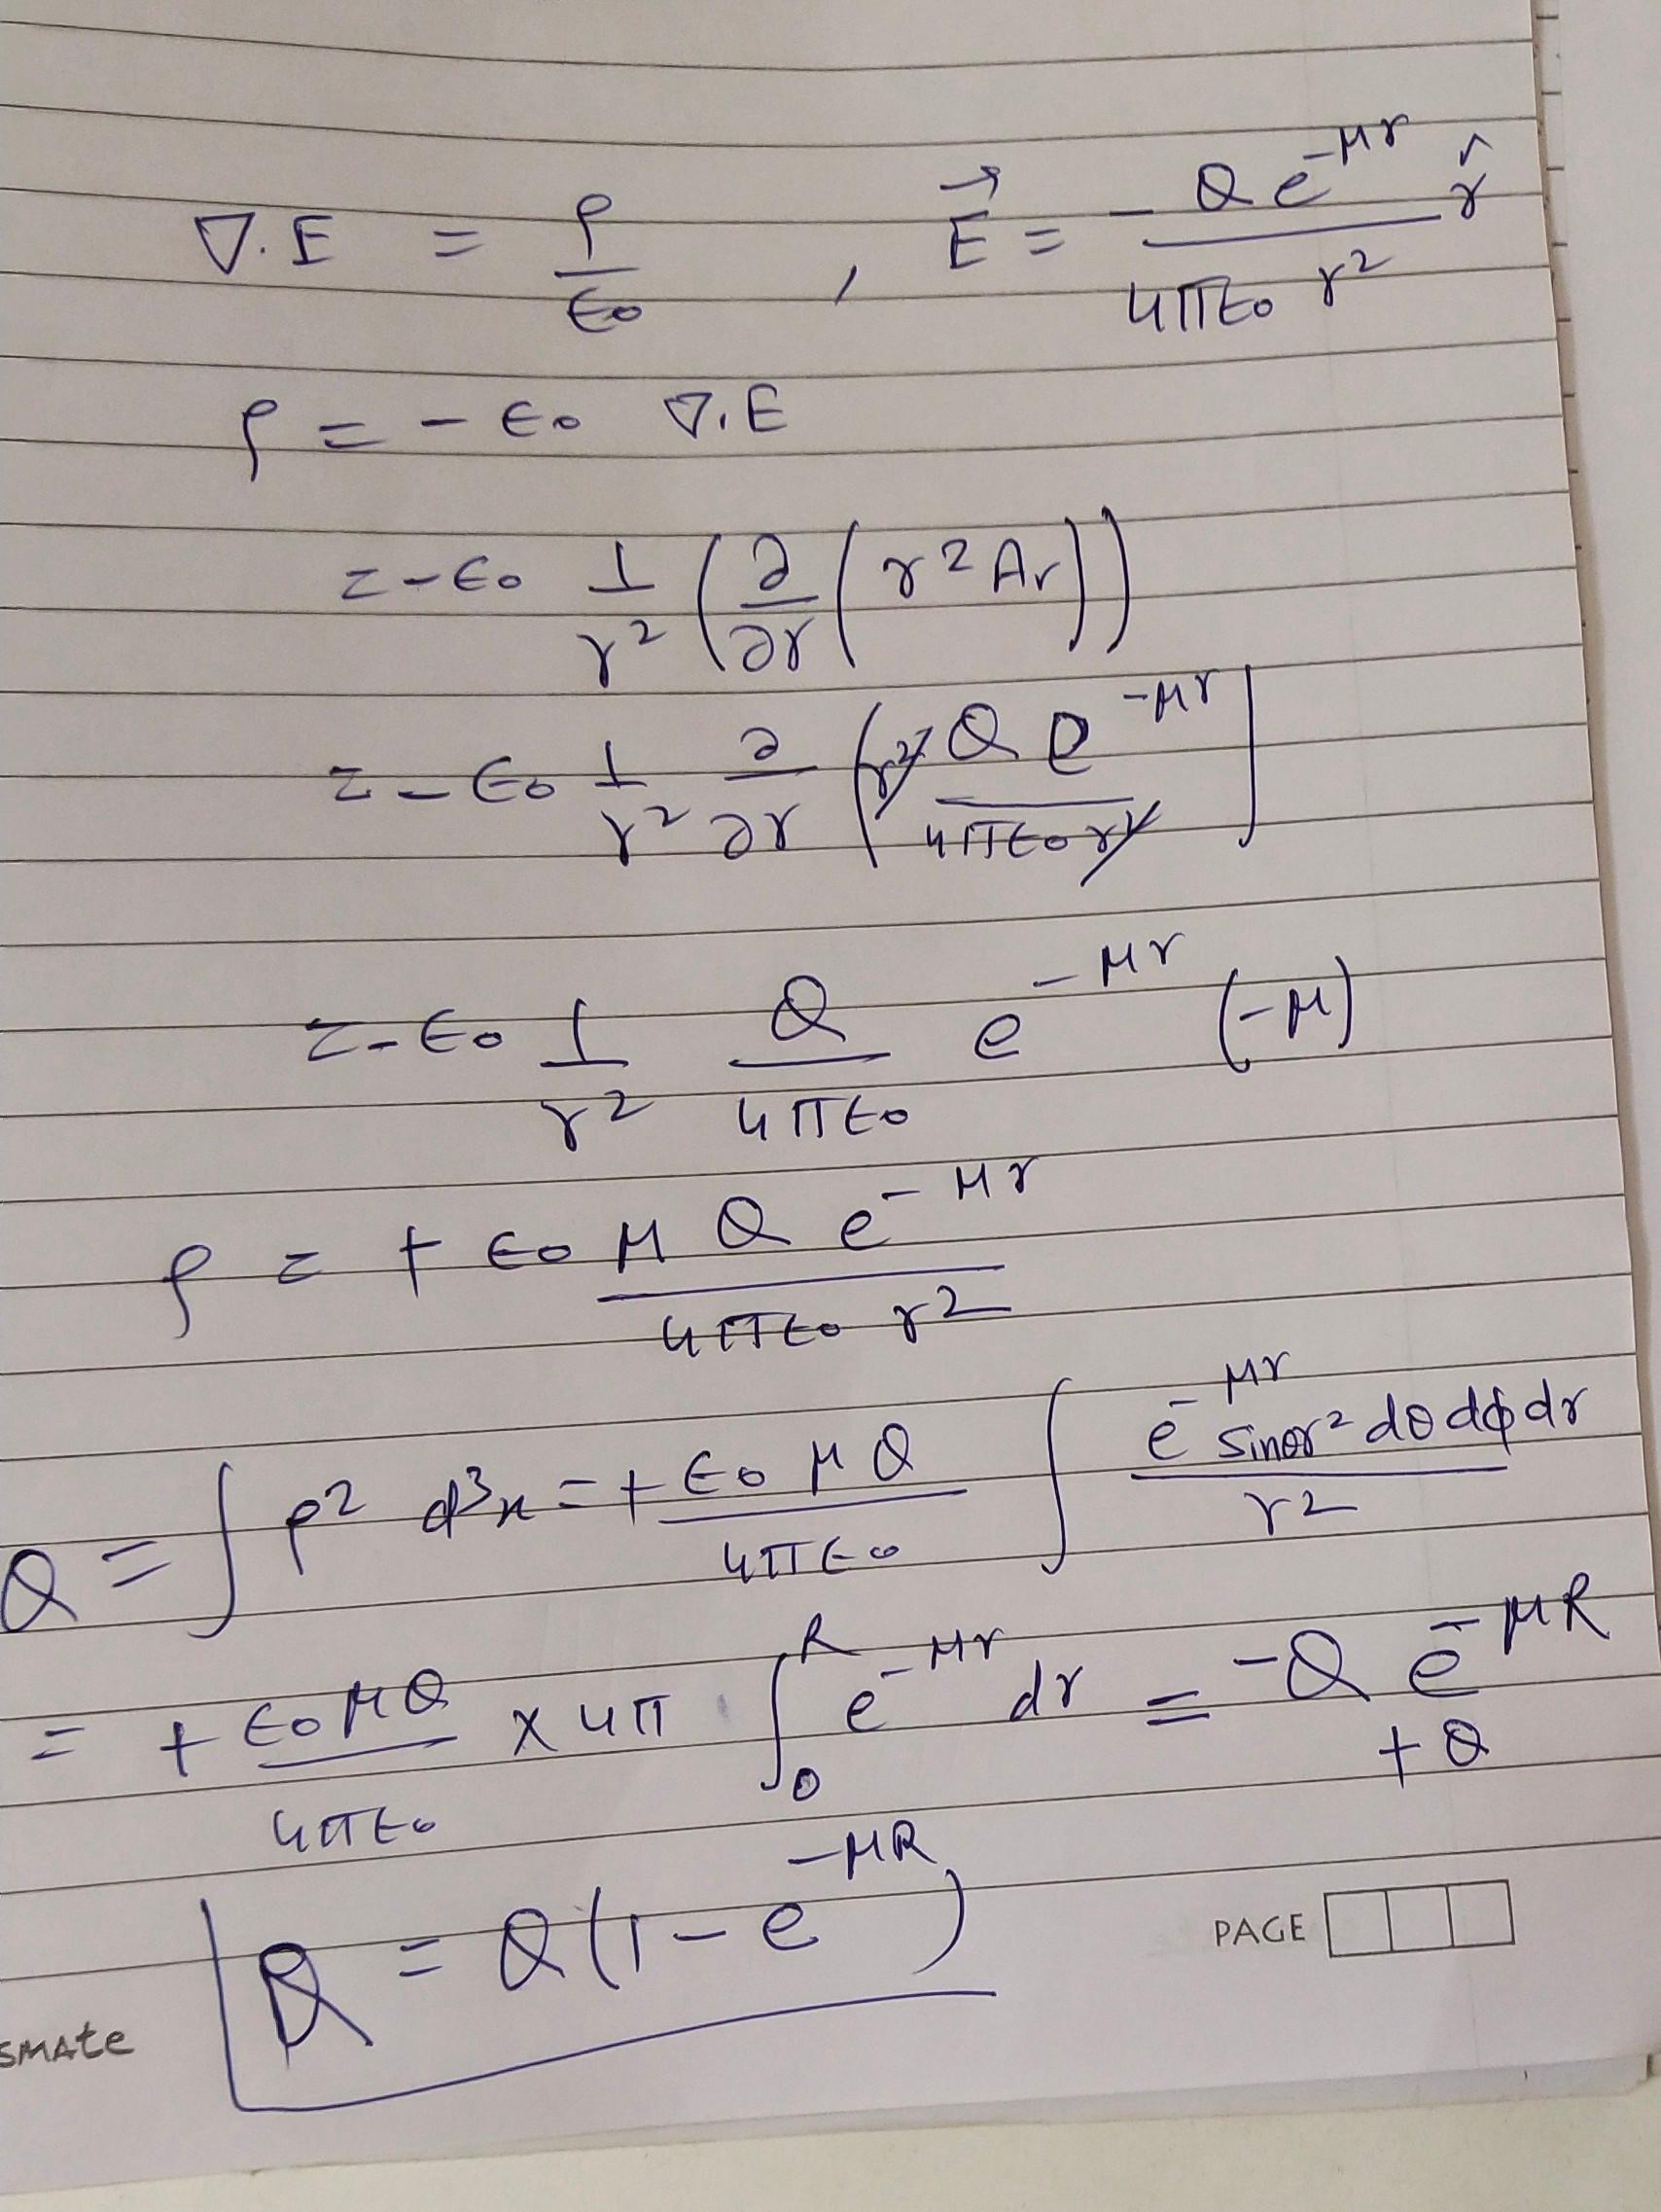 ∇.E = ρ/ε₀ , E⃗ = - Q e^{-μr}/(4πε₀ r²) r̂
ρ = - ε₀ ∇.E
= - ε₀ 1/r² (∂/∂r (r² Ar))
= - ε₀ 1/r² ∂/∂r (r² Q e^{-μr}/(4πε₀ r²)]
= - ε₀ 1/r² Q/(4πε₀) e^{-μr} (-μ)
ρ = + ε₀ μ Q e^{-μr}/(4πε₀ r²)
Q = ∫ ρ² d³x = + ε₀ μ Q/(4πε₀) ∫ e^{-μr} sinθ r² dθ dϕ dr/r²
= + ε₀ μ Q/(4πε₀) × 4π ∫₀^R e^{-μr} dr = -Q e^{-μR} + Q
Q = Q(1 - e^{-μR})
PAGE
smate